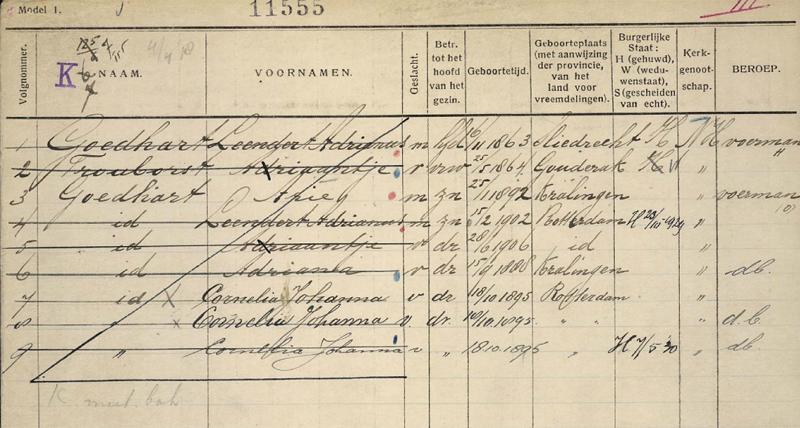 Model 1. 11555
Volgnommer. NAAM. VOORNAMEN. Geslacht. Betr. tot het hoofd van het gezin. Geboortetijd. Geboorteplaats (met aanwijzing der provincie, van het land voor vreemdelingen). Burgerlijke Staat: H (gehuwd), W (weduwenstaat), S (gescheiden van echt). Kerkgenootschap. BEROEP.
K
1 Goedhart Leendert Adrianus m hfd 16/11 1863 Sliedrecht H NH voerman
2 Trouborst Adriaantje v vrw 25/5 1864 Gouderak H W "
3 Goedhart Apie m zn 25/11 1892 Kralingen " voerman
4 id Leendert Adrianus m zn 2 1902 Rotterdam H 23/III 1929 "
5 id Adriaantje v dr 28/6 1906 id "
6 id Adriana v dr 15/9 1888 Kralingen " db.
7 id Cornelia Johanna v dr 18/10 1895 Rotterdam "
8 Cornelia Johanna v. dr. 10/10 1895 " " " d.b.
9 " Cornelia Johanna v " 18 10 1895 " H 7/5 '30 " db.
K.